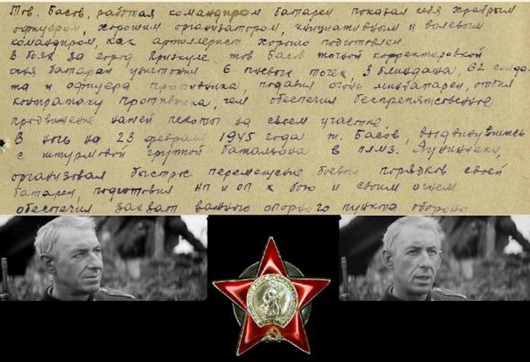 Тов. Басов, работая командиром батареи показал себя храбрым
офицером, хорошим организатором, инициативным и волевым
командиром, как артиллерист хорошо подготовлен.
В боях за город Прекуле тов Басов точной корректировкой
огня батареи уничтожил 6 пулемет точек, 3 блиндажа, 62 солда
та и офицера противника, подавил огонь минбатареи, отбил
контратаку противника, чем обеспечил беспрепятственное
продвижение нашей пехоты на своем участке.
В ночь на 23 февраля 1945 года т. Басов, выдвинувшись
с штурмовой группой батальона в
организовал быстрое перемещение боевых порядков своей
батареи, подготовил НП и ОП к бою и своим огнем
обеспечил захват важного опорного пункта обороны